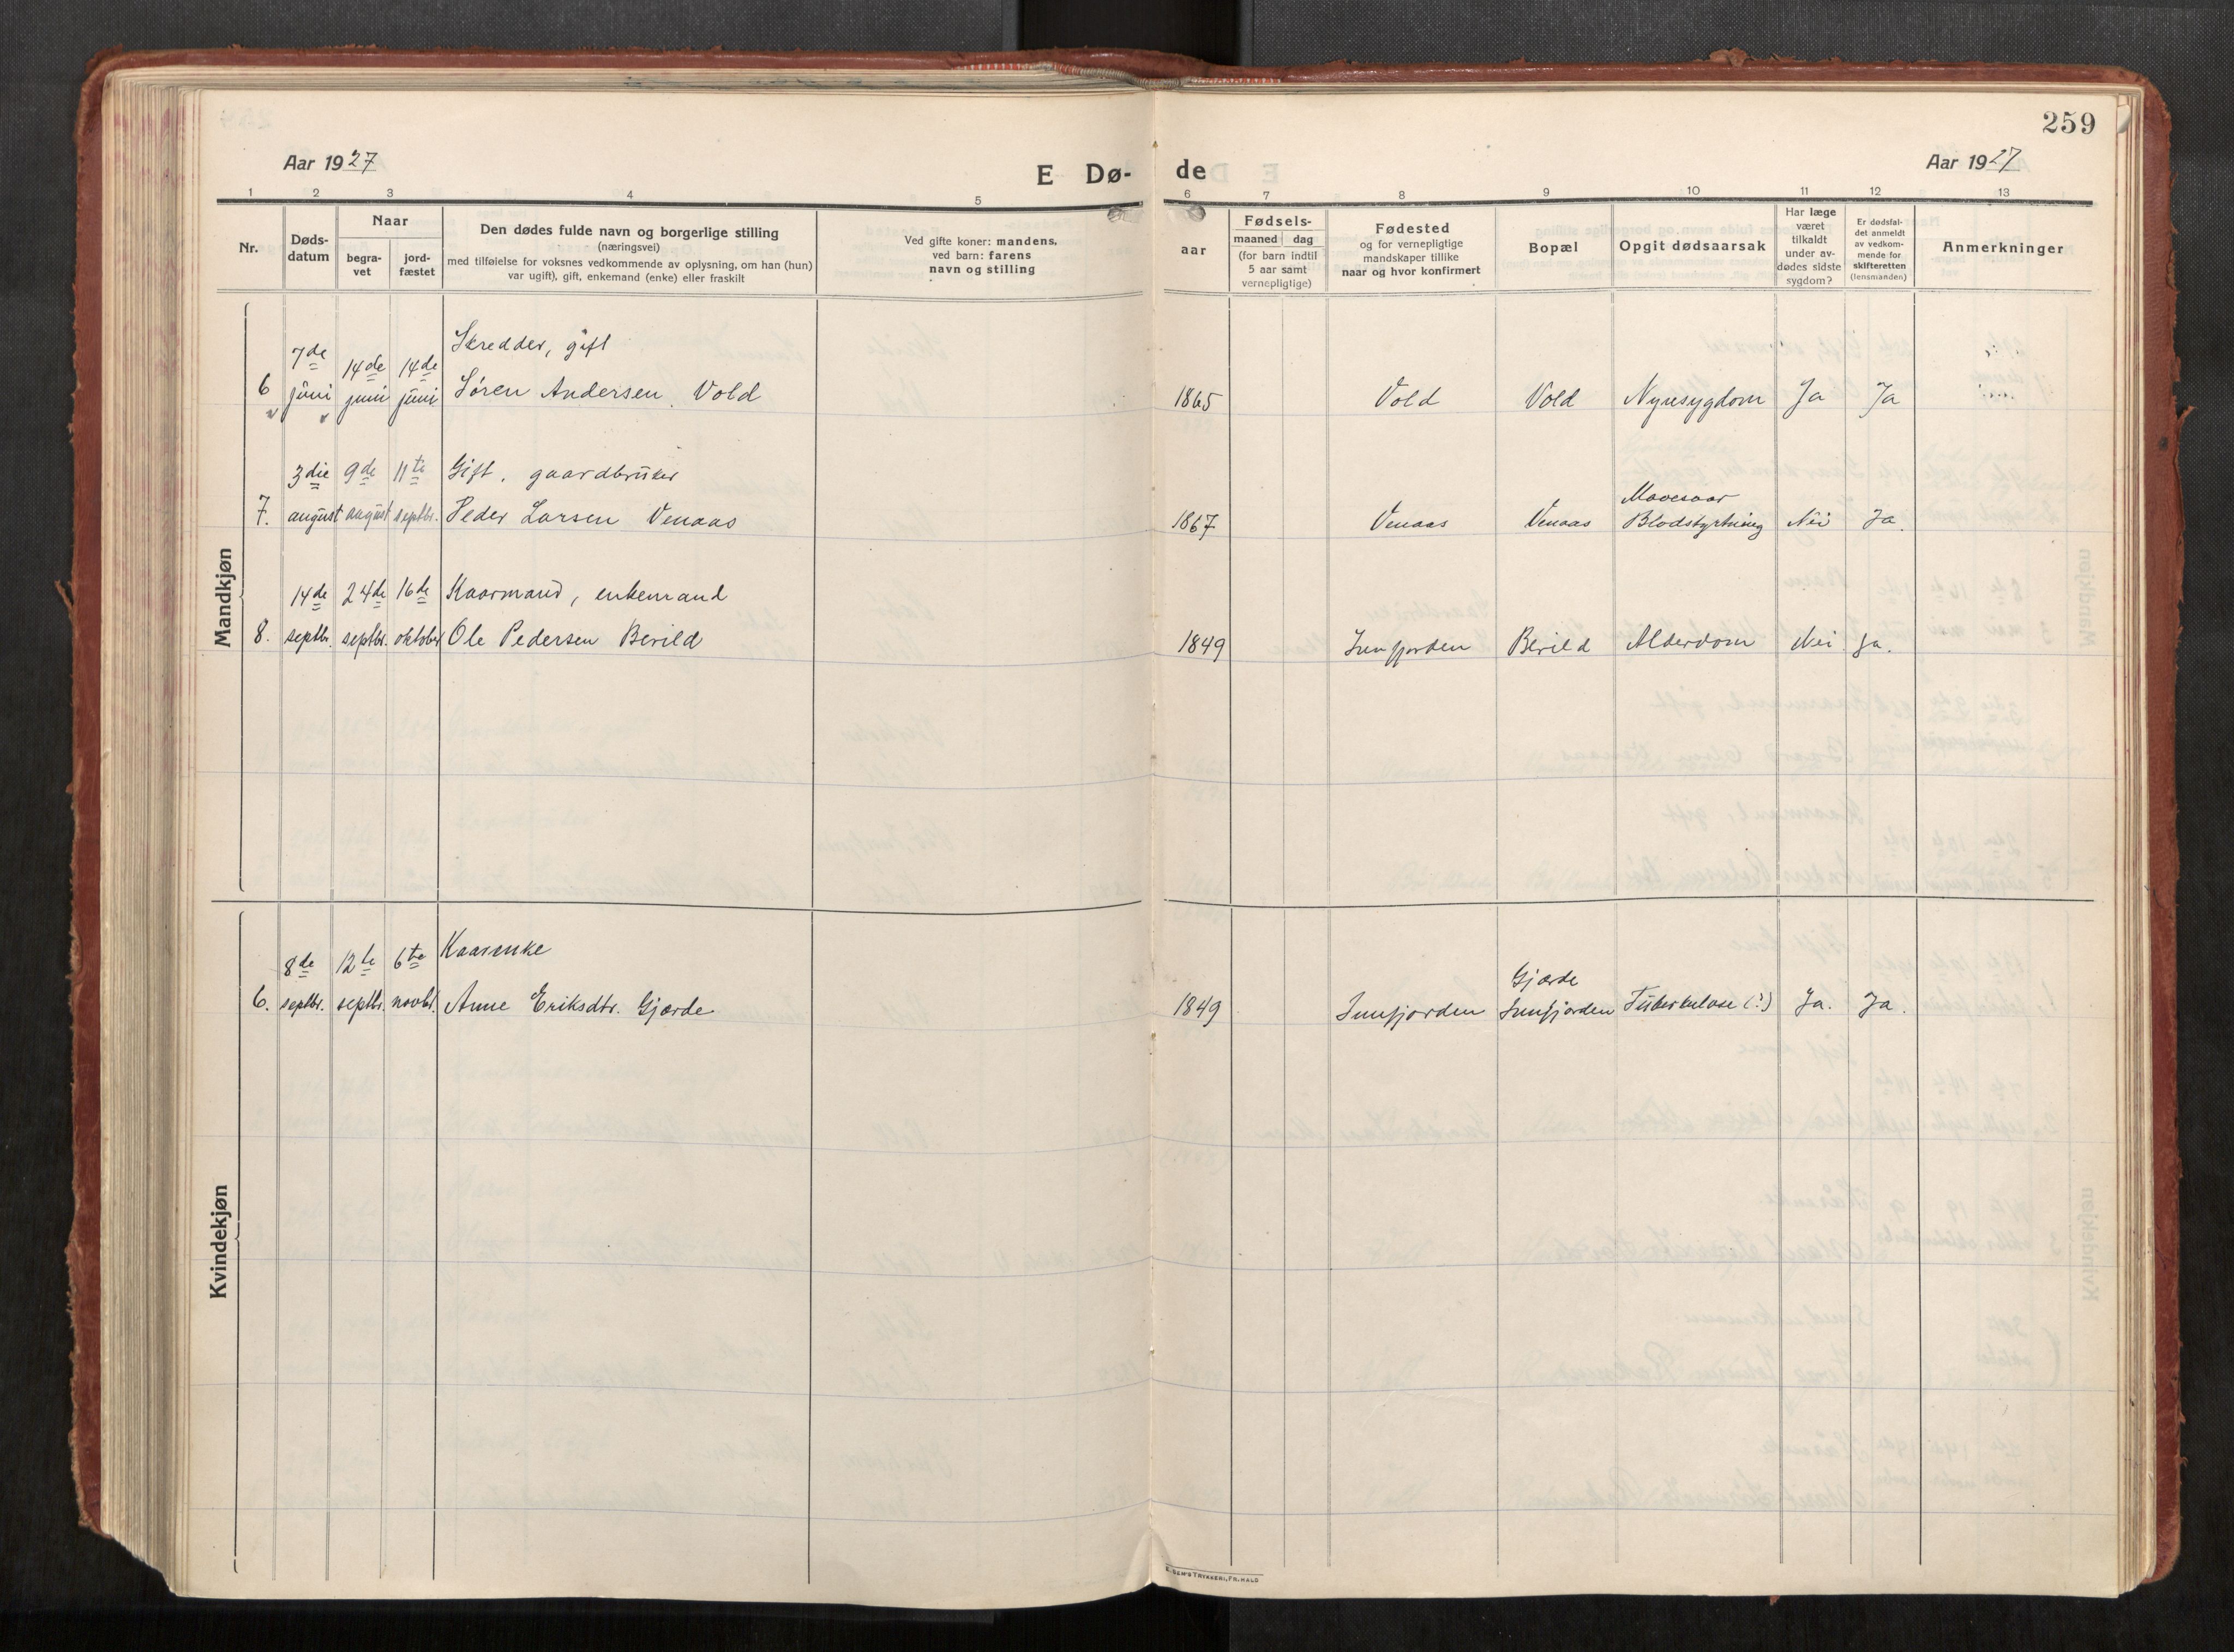 259
Aar 1927
E Dø-
de
Aar 1927
1 2 3 4 5 6 7 8 9 10 11 12 13
Nr.
Døds-
datum
Naar
begra-
vet
jord-
fæstet
Den dødes fulde navn og borgerlige stilling
(næringsvei)
med tilføielse for voksnes vedkommende av oplysning, om han (hun)
var ugift), gift, enkemand (enke) eller fraskilt
Ved gifte koner: mandens,
ved barn: farens
navn og stilling
aar
Fødsels-
maaned dag
(for barn indtil
5 aar samt
vernepligtige)
Fødested
og for vernepligtige
mandskaper tillike
naar og hvor konfirmert
Bopæl
Opgit dødsaarsak
Har læge
været
tilkaldt
under av-
dødes sidste
sygdom?
Er dødsfal-
det anmeldt
av vedkom-
mende for
skifteretten
(lensmanden)
Anmerkninger
Mandkjøn
7de 14de 14de Skredder, gift
6 juni juni juni Søren Andersen Vold 1865 Vold Vold Nyresygdom Ja Ja
3die 9de 11te Gift, gaardbruker Mavesaar
7. august august septbr. Peder Larsen Venaas 1867 Venaas Venaas Blodstyrtning Nei Ja.
14de 24de 16de Kaarmand, enkemand
8. septbr. septbr. oktober Ole Pedersen Berild 1849 Innfjorden Berild Alderdom Nei Ja.
Kvindekjøn
8de 12te 6te Kaarenke Gjærde
6. septbr. septbr. novbr. Anne Eriksdtr. Gjærde 1849 Innfjorden Innfjorden Tuberkulose (?) Ja. Ja.
TRYKKERI, FR.HALD